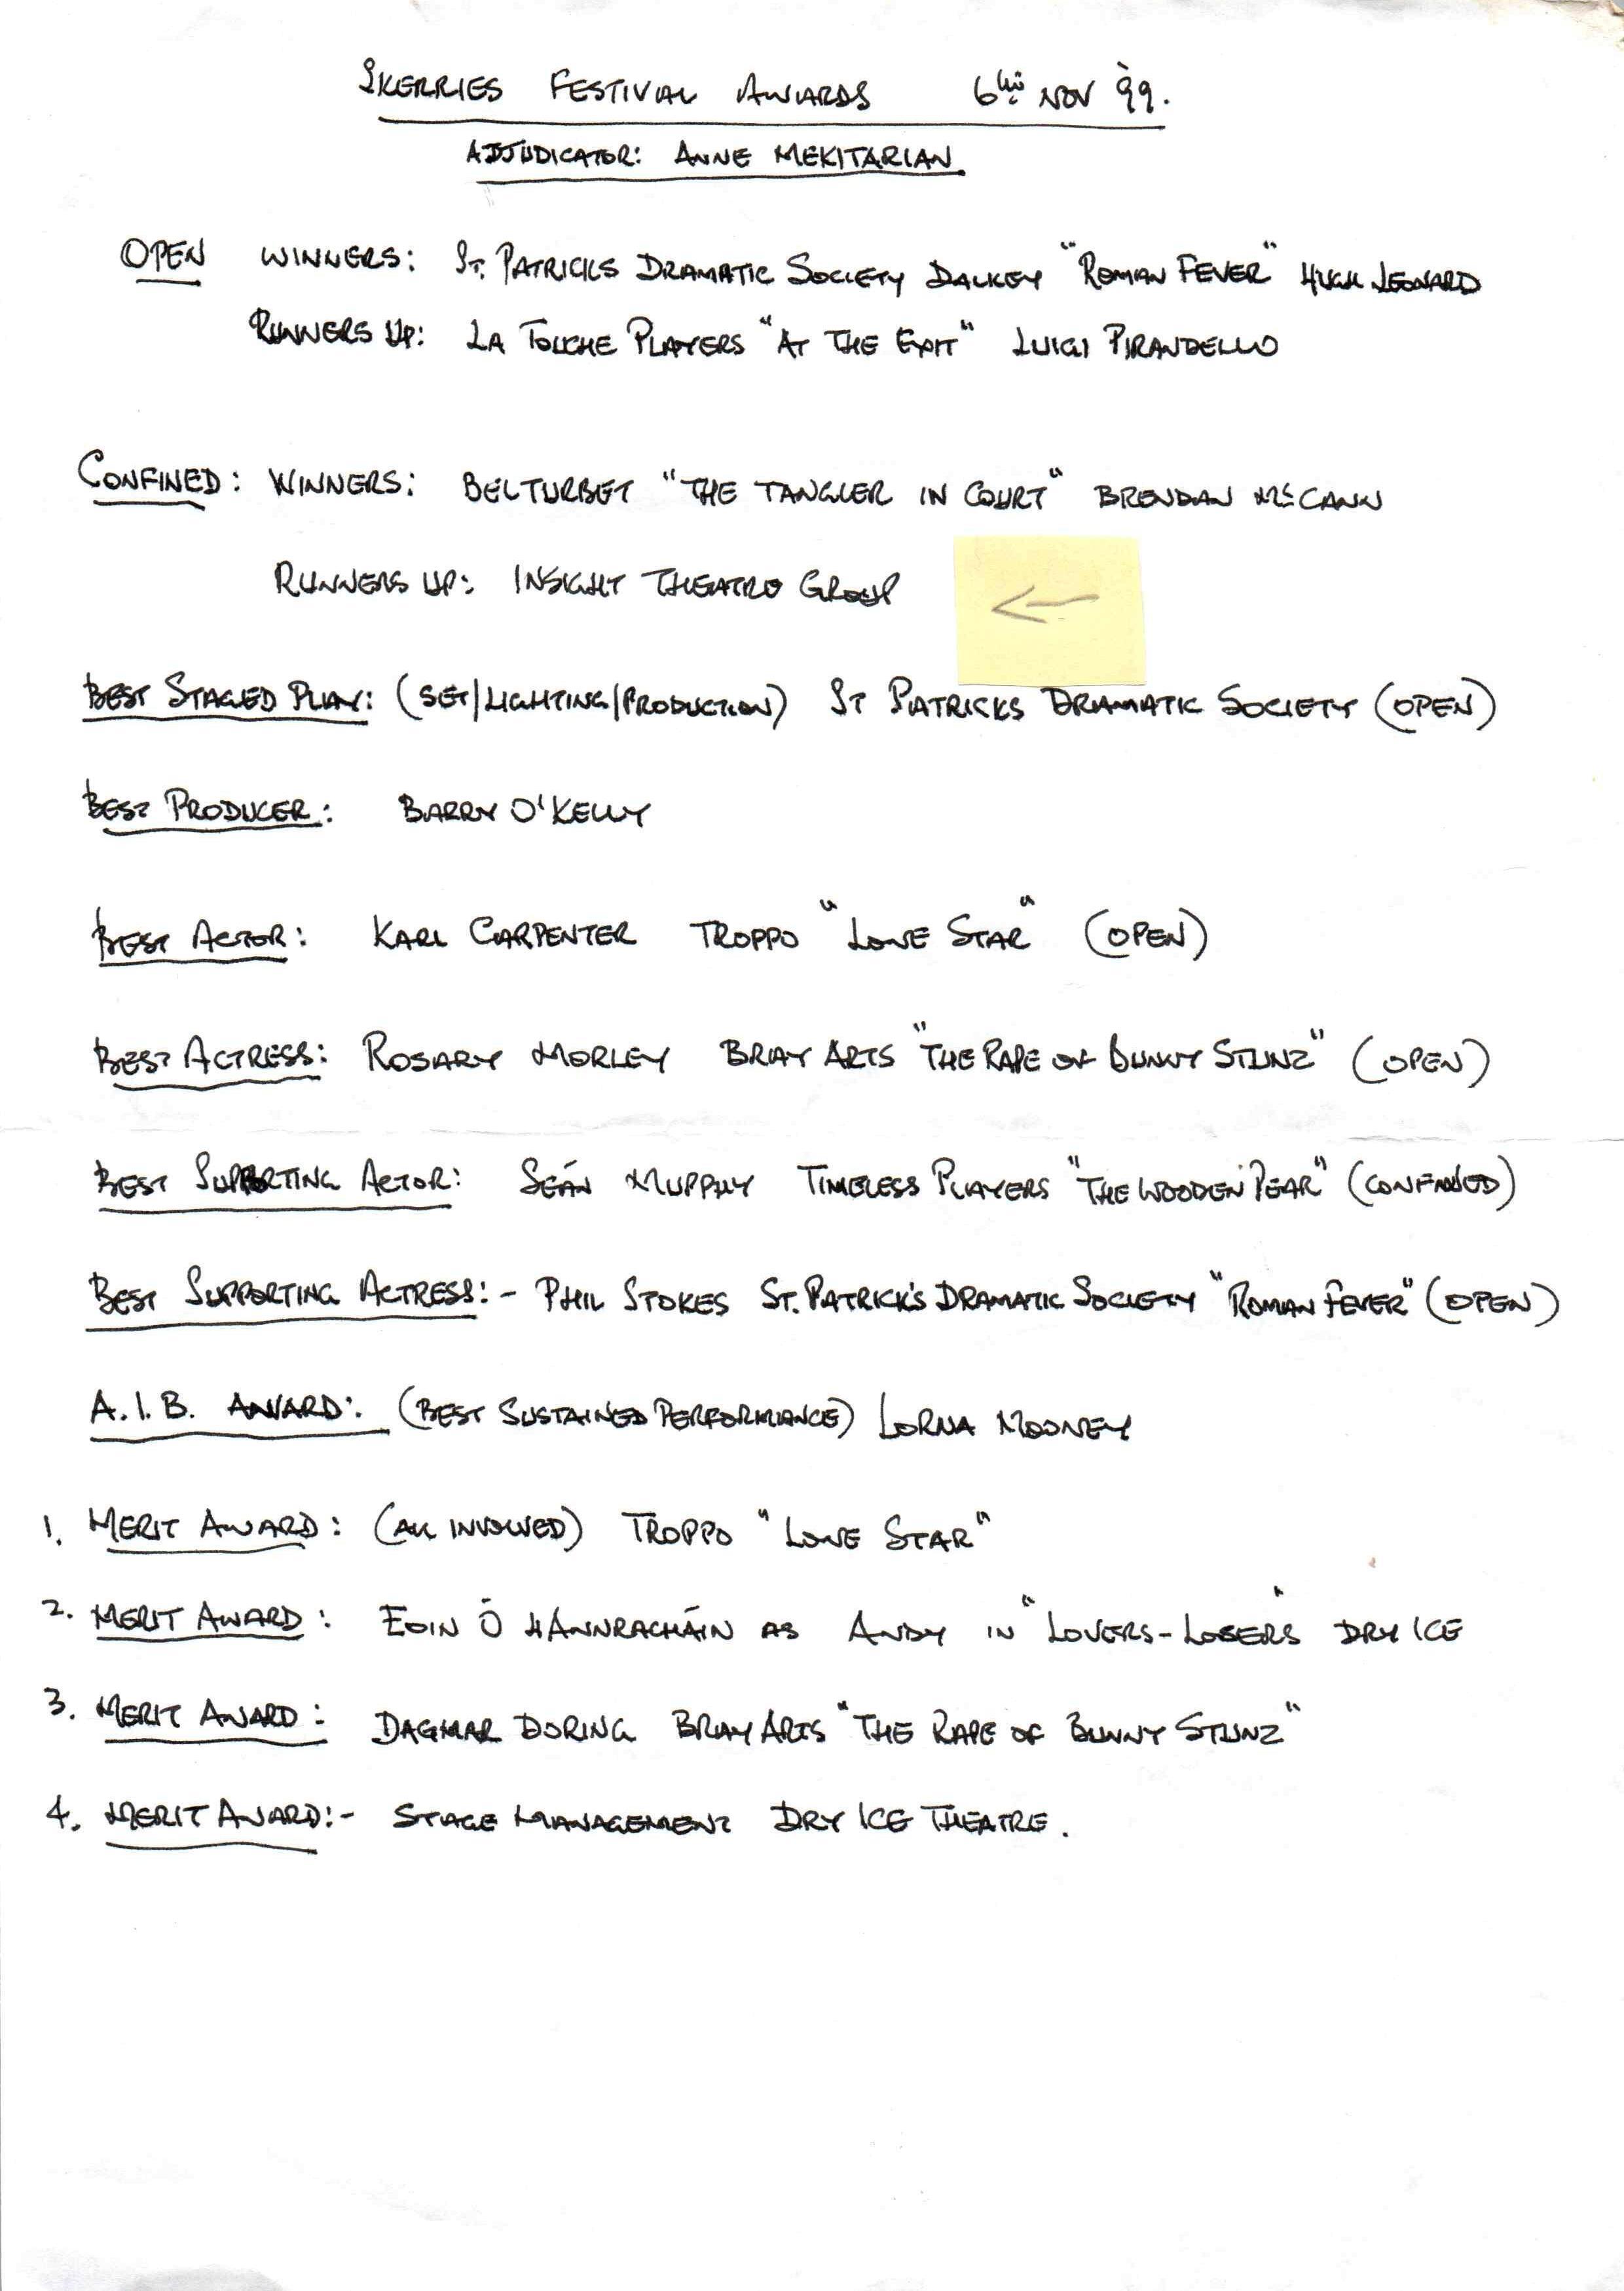 SKERRIES FESTIVAL AWARDS 6th NOV '99.
ADJUDICATOR: ANNE MEKITARIAN
OPEN WINNERS: ST. PATRICKS DRAMATIC SOCIETY DALKEY "ROMAN FEVER" HUGH LEONARD
RUNNERS UP: LA TOUCHE PLAYERS "AT THE EXIT" LUIGI PIRANDELLO
CONFINED: WINNERS: BELTURBET "THE TANGLER IN COURT" BRENDAN McCANN
RUNNERS UP: INSIGHT THEATRE GROUP
BEST STAGED PLAY: (SET/LIGHTING/PRODUCTION) ST PATRICKS DRAMATIC SOCIETY (OPEN)
BEST PRODUCER: BARRY O'KELLY
BEST ACTOR: KARL CARPENTER TROPPO "LONE STAR" (OPEN)
BEST ACTRESS: ROSARY MORLEY BRAY ARTS "THE RAPE OF BUNNY STUNZ" (OPEN)
BEST SUPPORTING ACTOR: SEÁN MURPHY TIMELESS PLAYERS "THE WOODEN PEAR" (CONFINED)
BEST SUPPORTING ACTRESS:- PHIL STOKES ST. PATRICK'S DRAMATIC SOCIETY "ROMAN FEVER" (OPEN)
A.I.B. AWARD: (BEST SUSTAINED PERFORMANCE) LORNA MOONEY
1. MERIT AWARD: (ALL INVOLVED) TROPPO "LONE STAR"
2. MERIT AWARD: EOIN Ó HANNRACHÁIN AS ANDY IN "LOVERS-LOSERS" DRY ICE
3. MERIT AWARD: DAGMAR DORING BRAY ARTS "THE RAPE OF BUNNY STUNZ"
4. MERIT AWARD:- STAGE MANAGEMENT DRY ICE THEATRE.